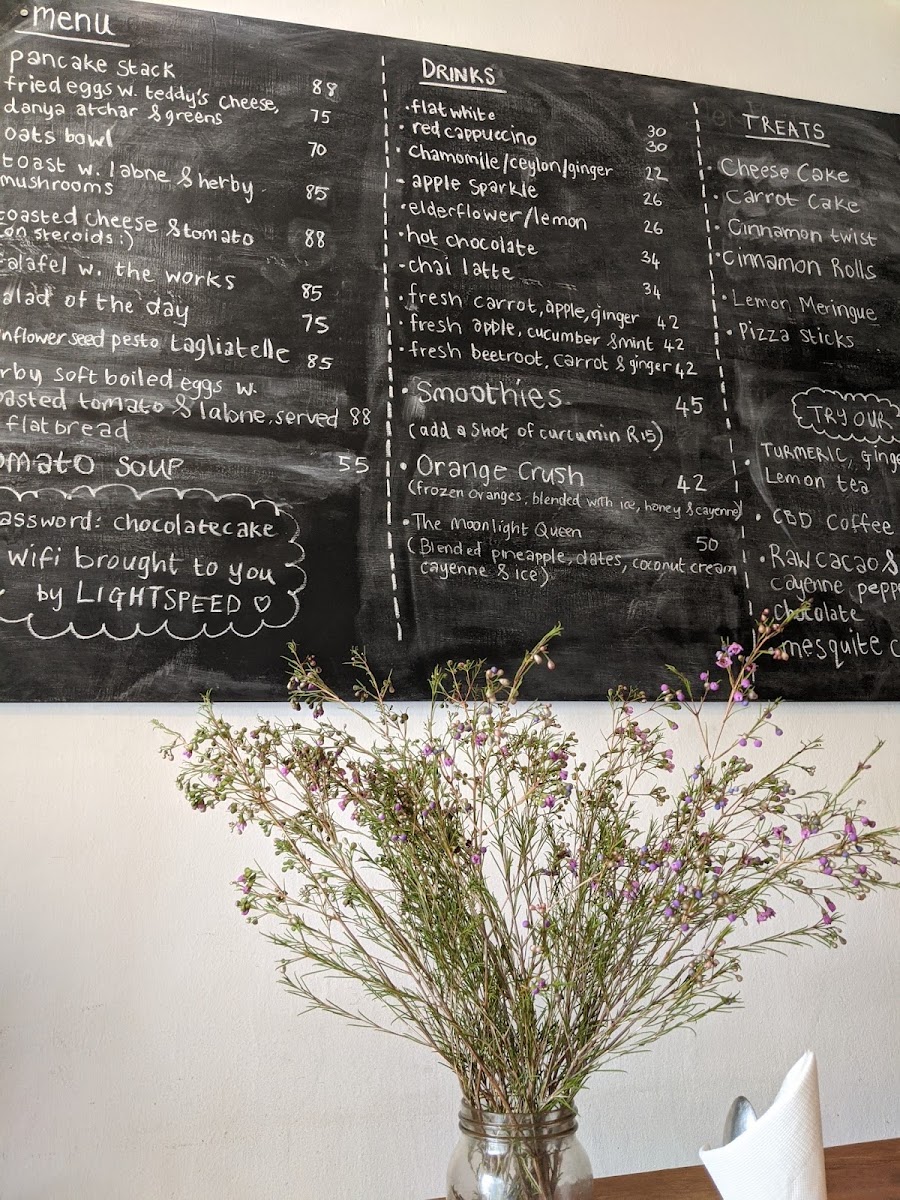 menu
pancake stack 88
fried eggs w. teddy's cheese,
danya atchar & greens 75
oats bowl 70
toast w. labne & herby
mushrooms 85
toasted cheese & tomato
(on steroids :) 88
falafel w. the works 85
alad of the day 75
nflower seed pesto tagliatelle 85
rby soft boiled eggs w.
asted tomato & labne, served 88
flatbread
omato soup 55
assword: chocolatecake
wifi brought to you
by LIGHTSPEED ♡
DRINKS
• flat white 30
• red cappuccino 30
• chamomile/ceylon/ginger 22
- apple sparkle 26
• elderflower/lemon 26
• hot chocolate 34
- chai latte 34
• fresh carrot, apple, ginger 42
• fresh apple, cucumber & mint 42
• fresh beetroot, carrot & ginger 42
• Smoothies 45
(add a shot of curcumin R15)
• Orange Crush 42
(frozen oranges, blended with ice, honey & cayenne)
• The Moonlight Queen 50
(Blended pineapple, dates, coconut cream
cayenne & ice)
TREATS
• Cheese Cake
• Carrot Cake
• Cinnamon twist
• Cinnamon Rolls
• Lemon Meringue
• Pizza sticks
TRY OUR
• TURMERIC, ginge
Lemon tea
• CBD Coffee
• Raw cacao &
cayenne pepp
chocolate
mesquite c